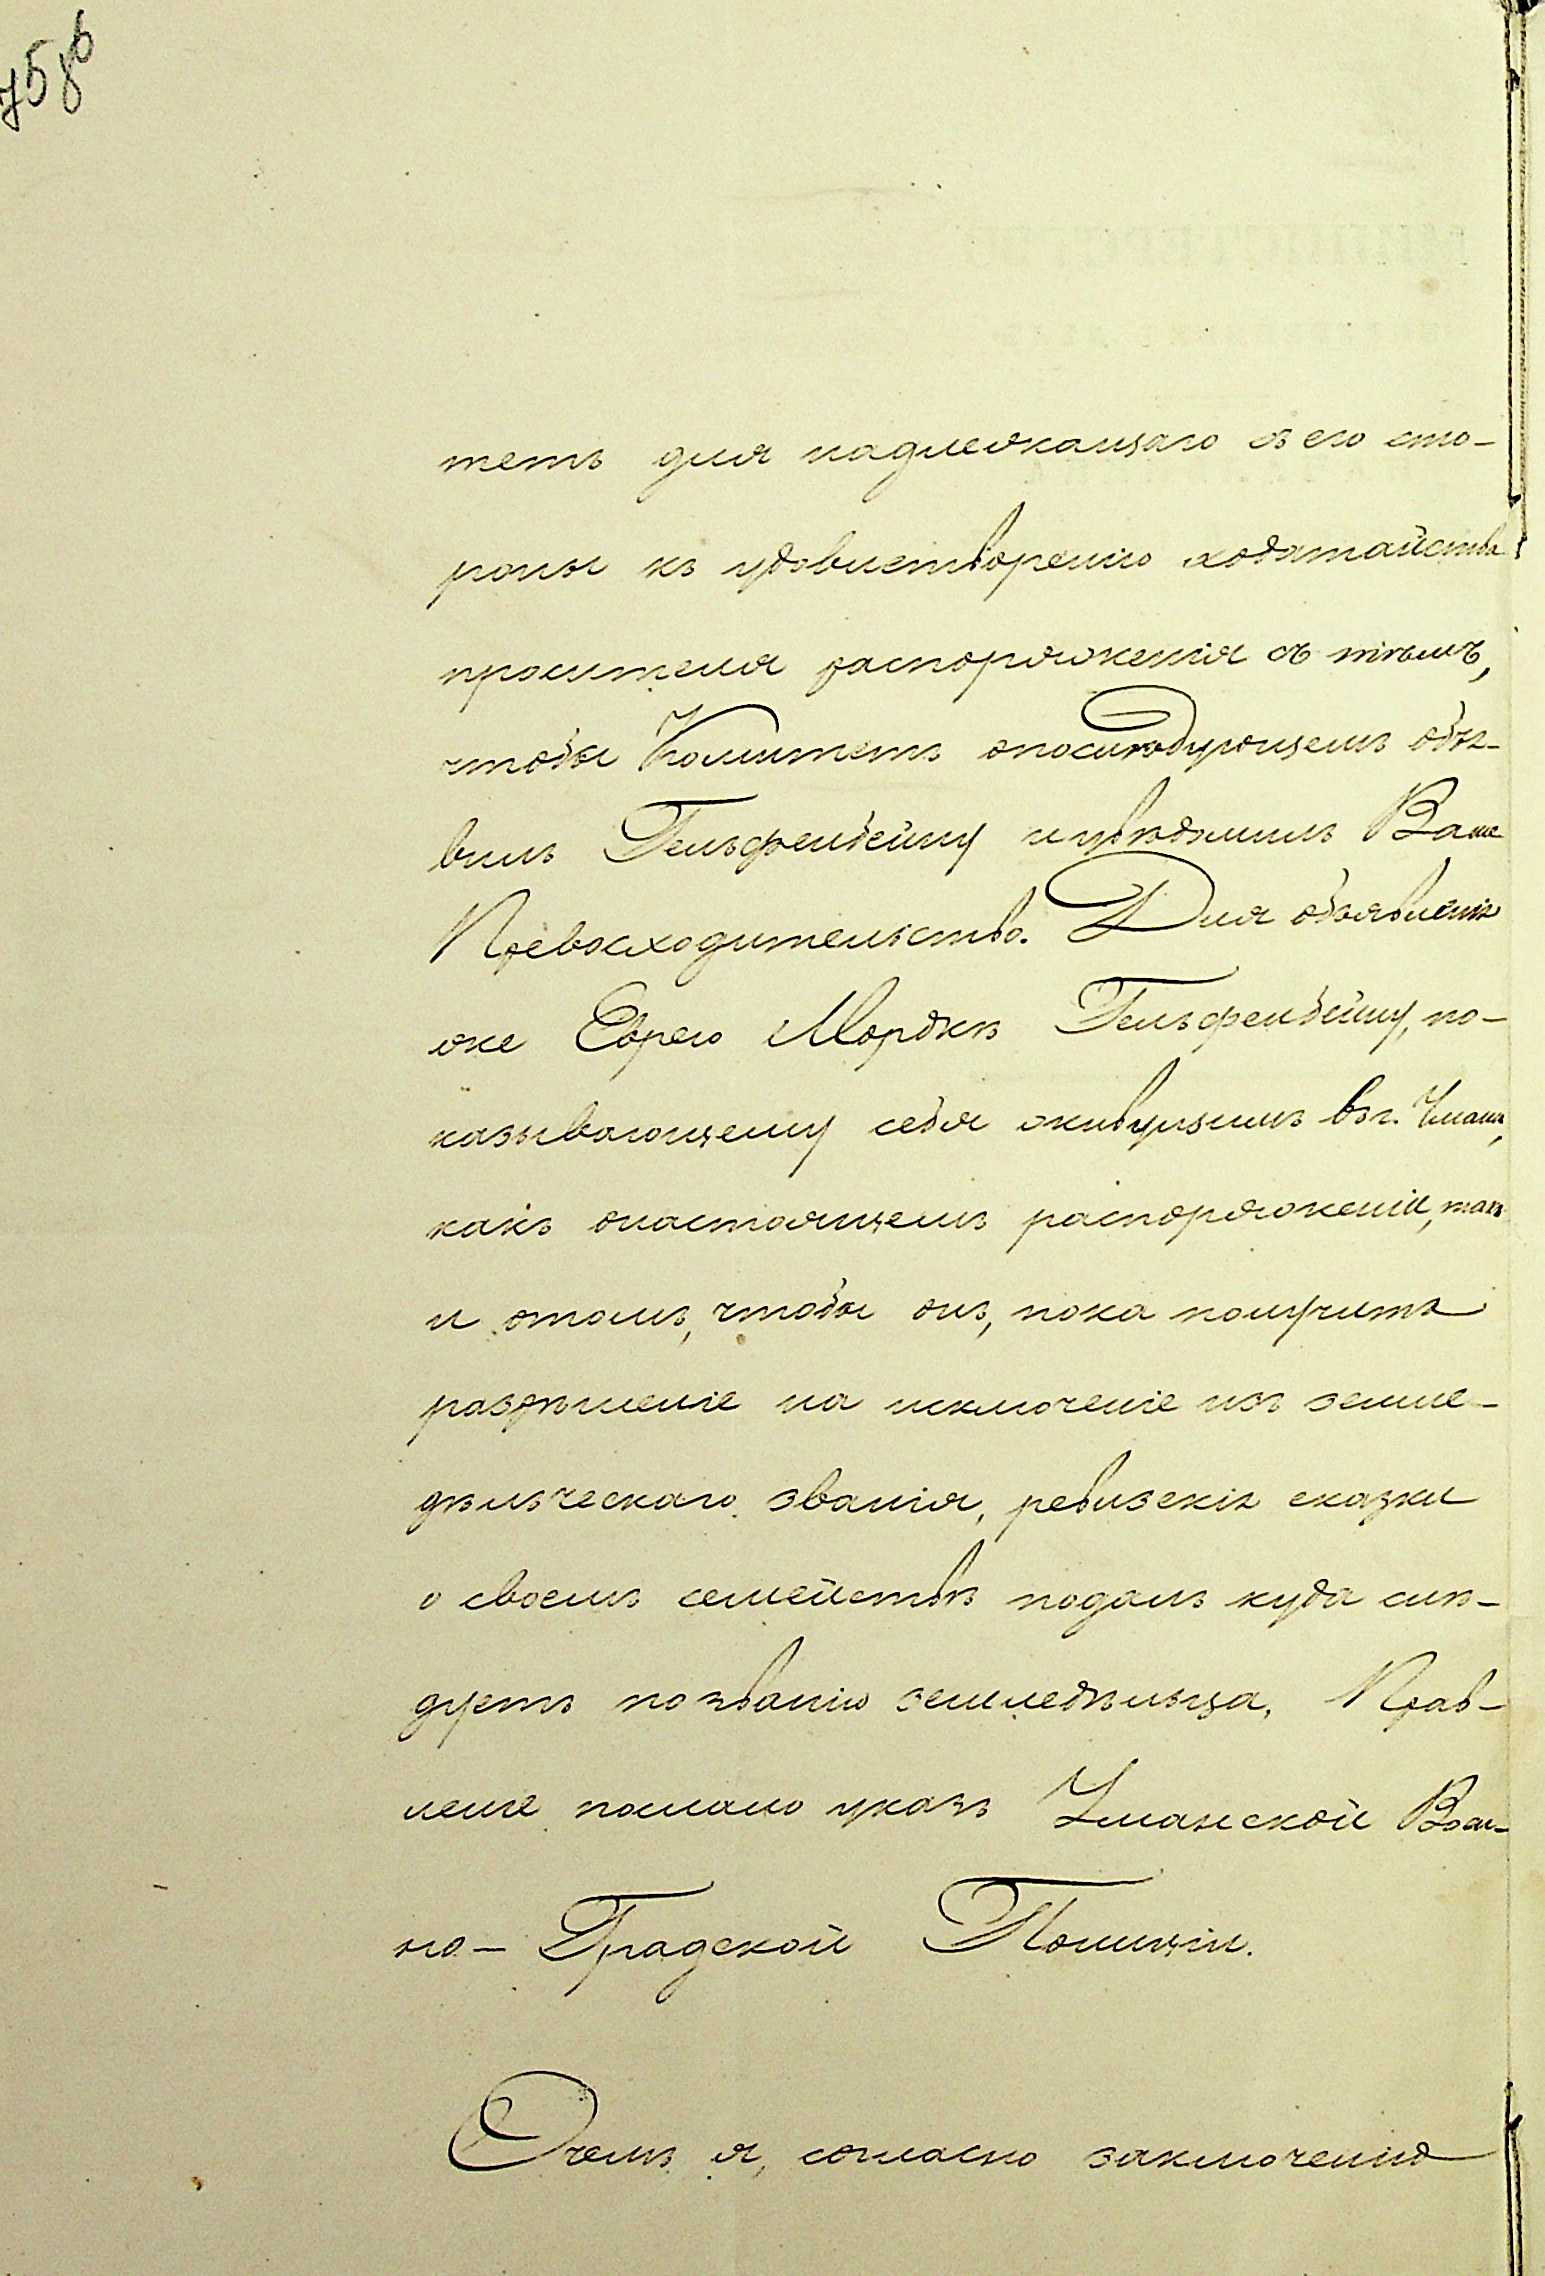 758б
тетъ для надлежащаго съ его сто-
роны къ удовлетворенію ходатайства
просителя распоряженія съ тѣмъ,
чтобы Комитетъ опослѣдующемъ объя-
вилъ Гельфенбейну и увѣдомилъ Ваше
Превосходительство. Для объявленія
же Еврею Мордкѣ Гельфенбейну, по-
казывающему себя живущимъ въ г. Умани,
какъ онастоящемъ распоряженіи, такъ
и отомъ, чтобы онъ, пока получитъ
разрѣшеніе на исключеніе изъ земле-
дѣльческаго званія, ревизскія сказки
о своемъ семействѣ подалъ куда слѣ-
дуетъ по званію земледѣльца, Прав-
леніе послало указъ Уманской Воен-
но- Градской Полиціи.
Очемъ я, согласно заключенію